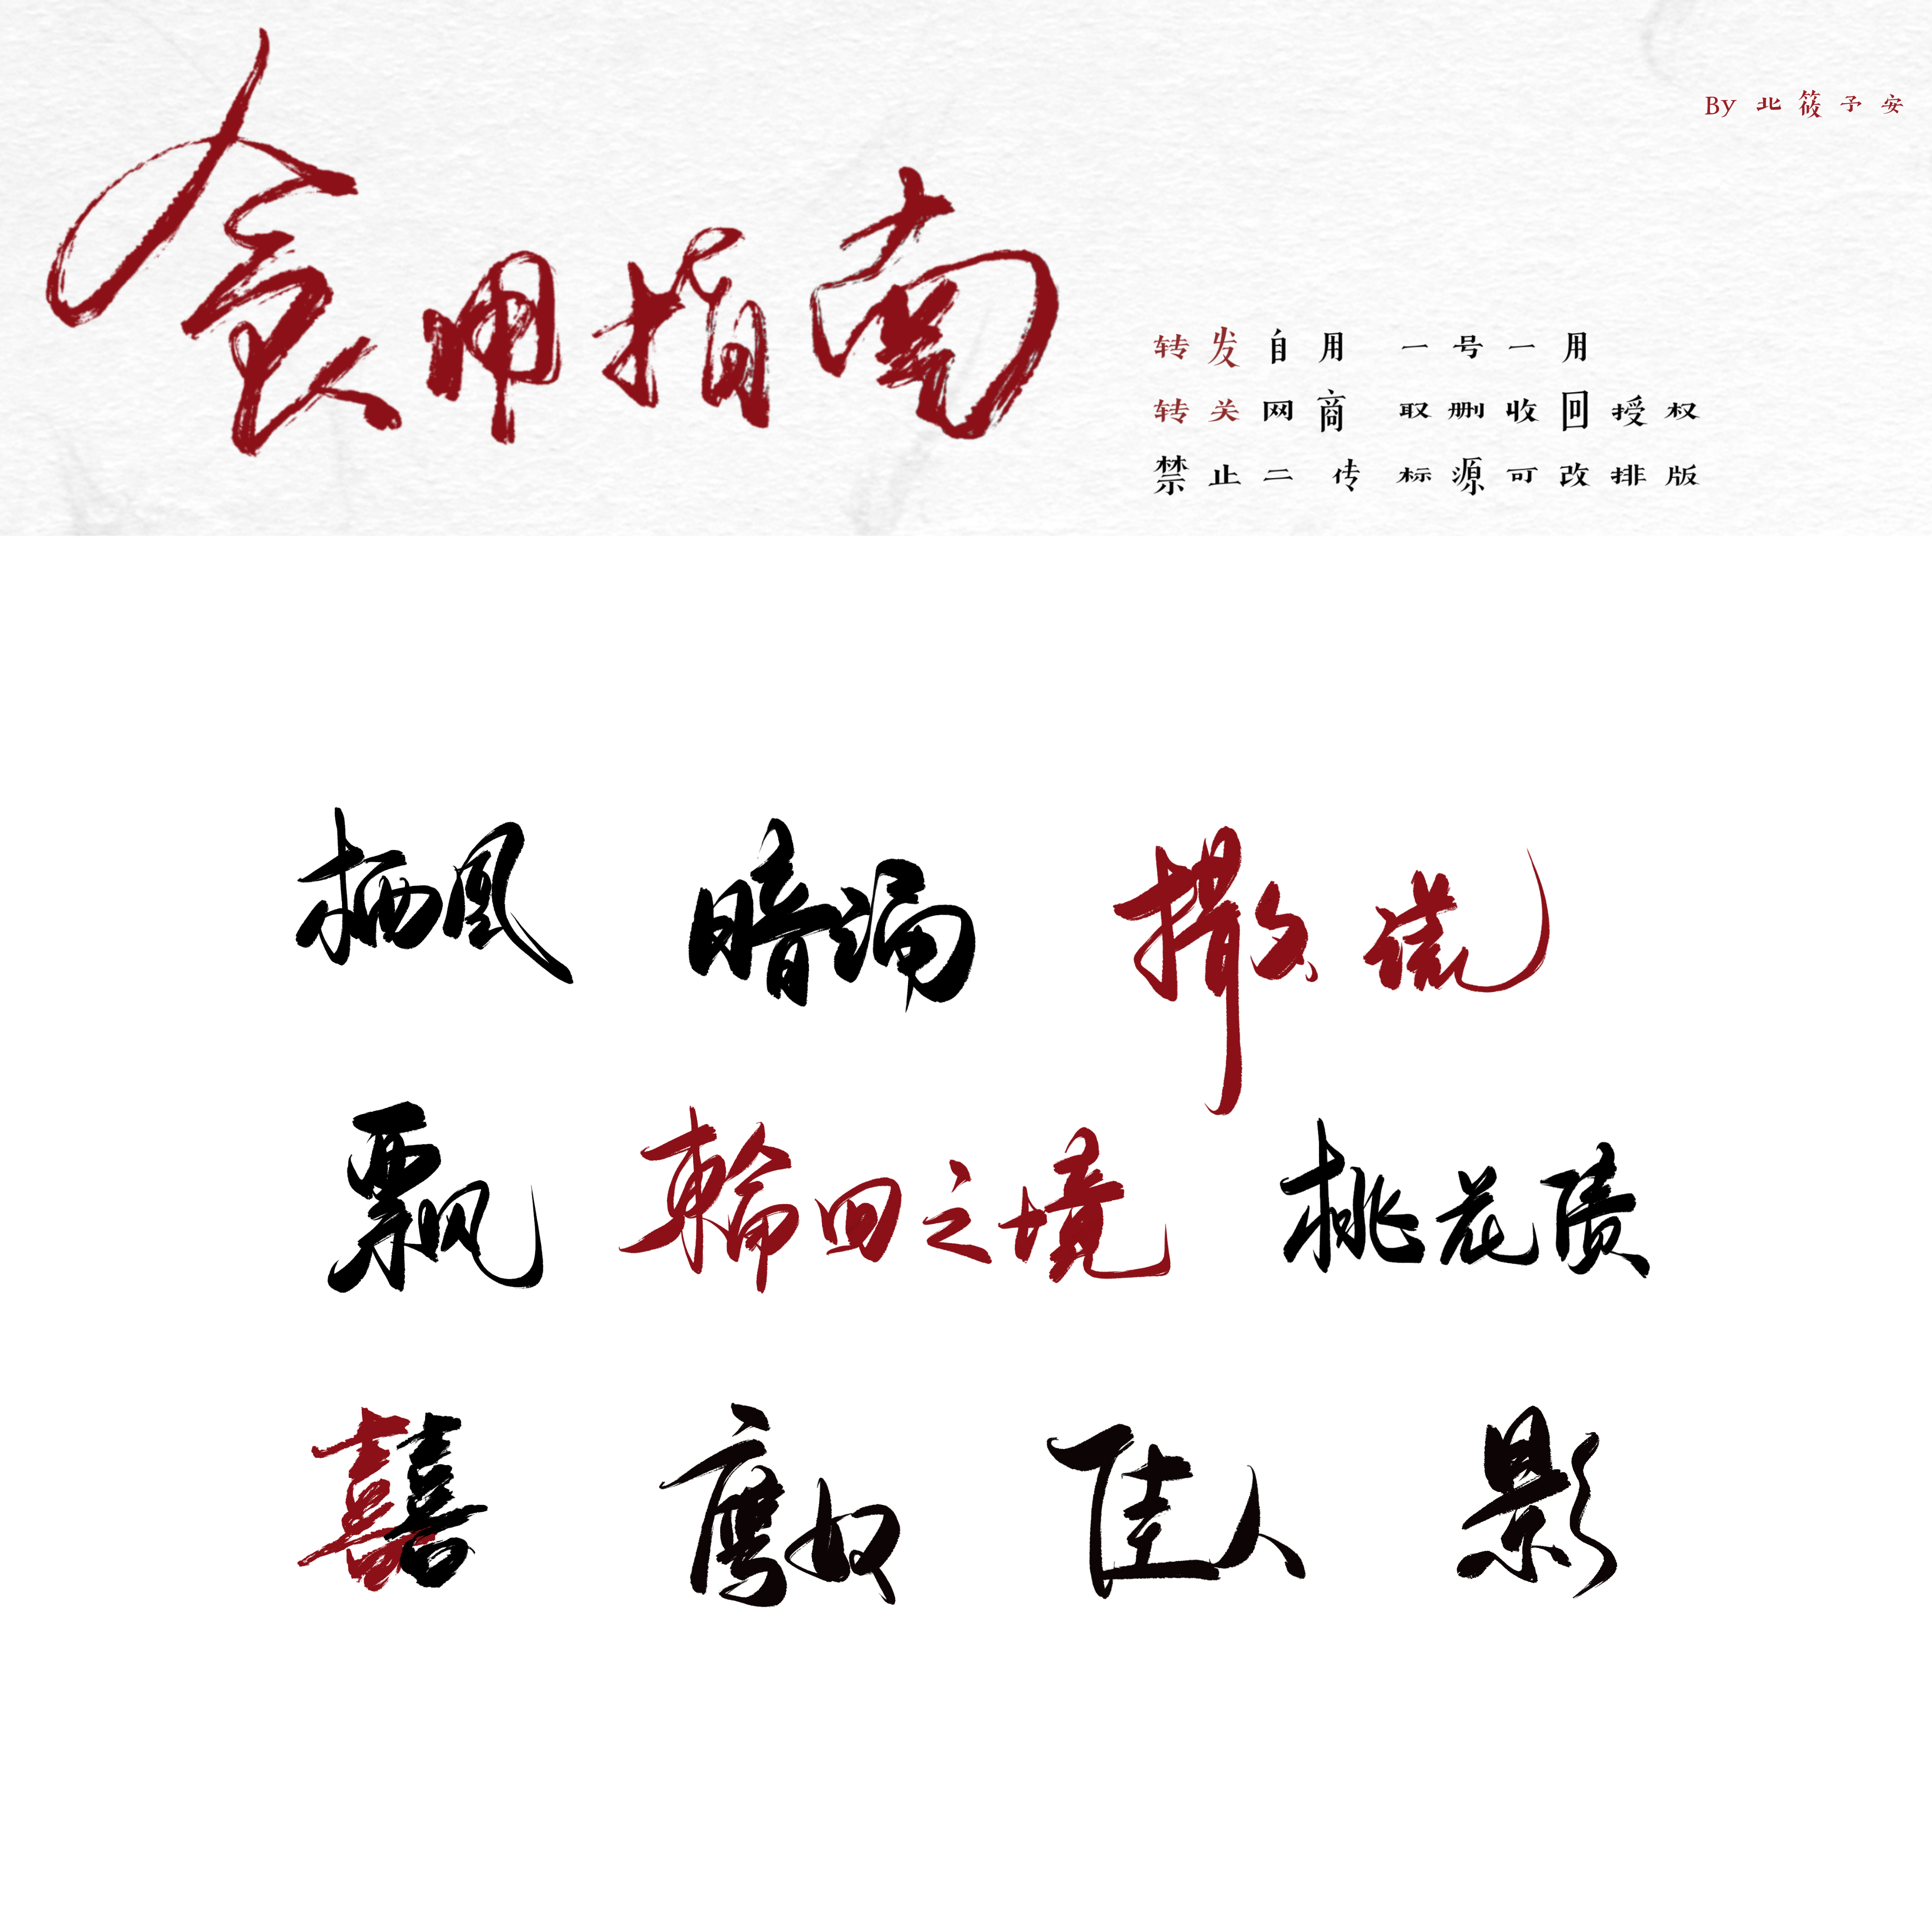 By 北筱予安
食用指南
转发自用 一号一用
转关网商 取删收回授权
禁止二传 标源可改排版
栖凰 暗漏 撒谎
飘 輪回之境 桃花债
囍 奴 佳人 影